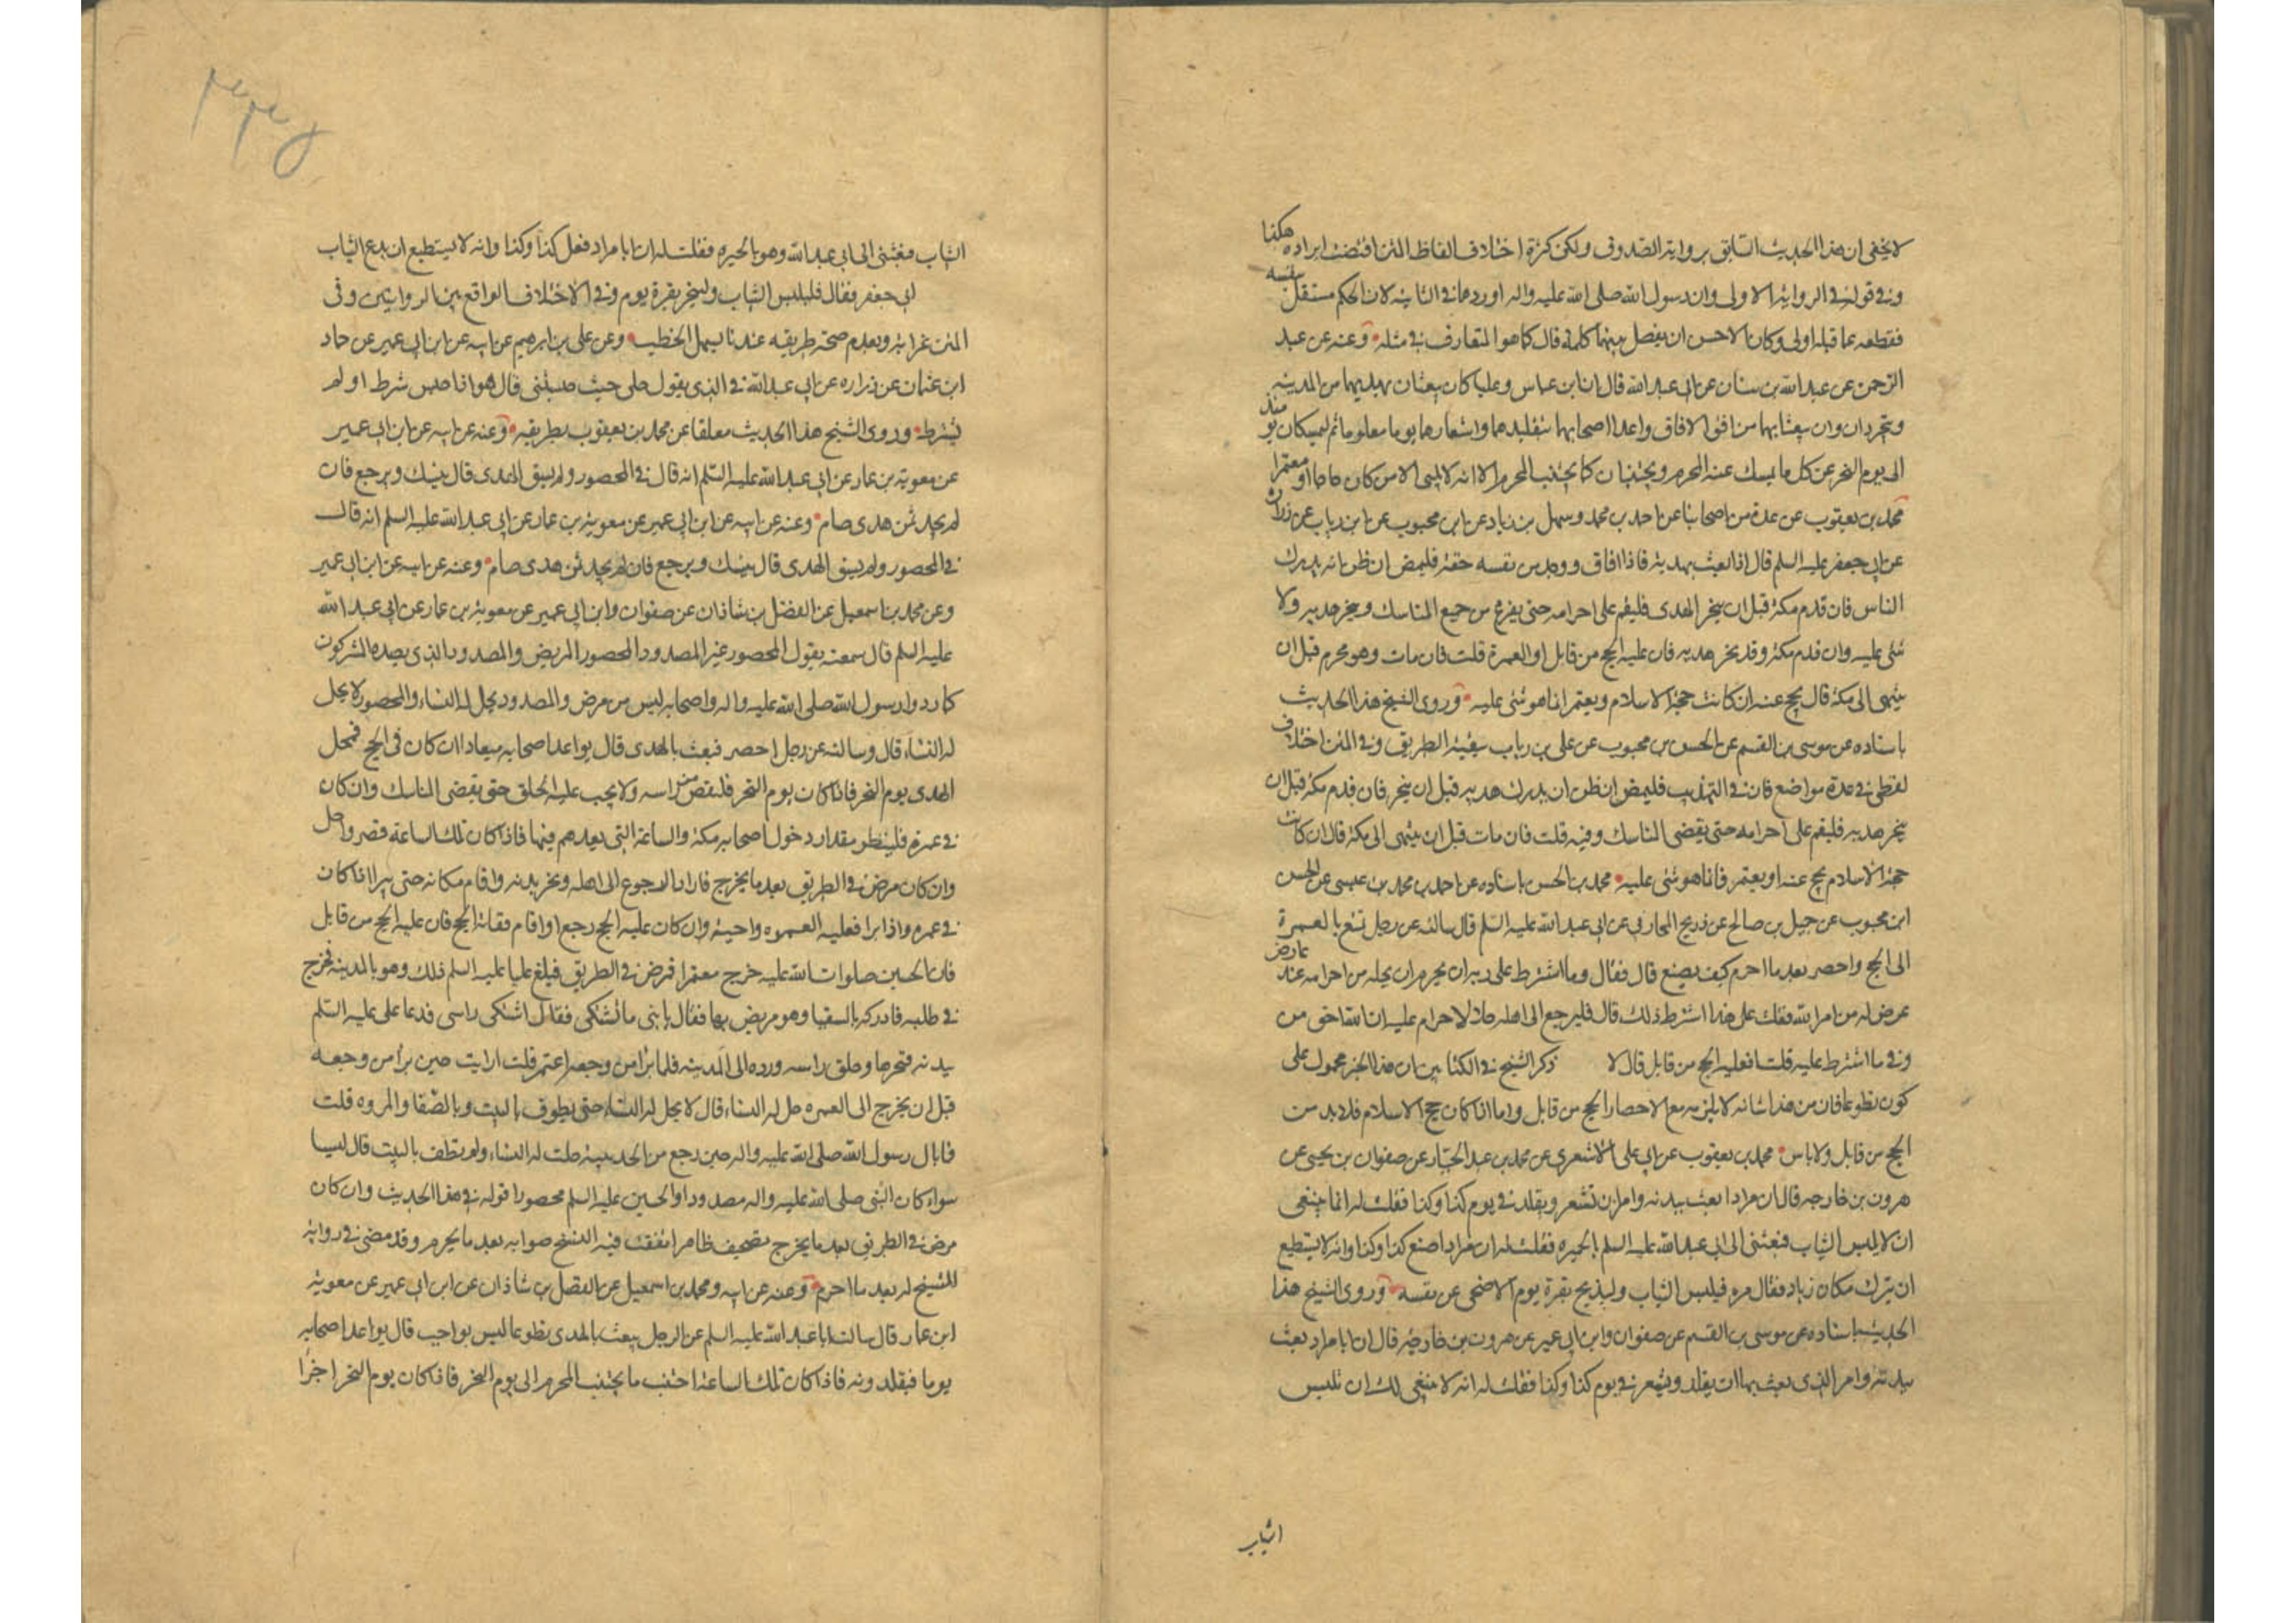 لا يخفى ان هذا الحديث السابق برواية الصدوق ولكن كثرة اختلاف الفاظ المتن اقتضت ايراده هكذا
وفى قوله فى الرواية الاولى وان رسول الله صلى الله عليه واله اوردها فى الثانية لان الحكم مستقل بنفسه
فقطعه عما قبله اولى وكان الاحسن ان يفصل بينهما كلمة قال كما هو المتعارف فى مثله وعنه عن عبد
الرحمن عن عبد الله بن سنان عن ابى عبد الله قال ان ابن عباس وعليا كان يبعثان بهديهما من المدينة
ويتجردان وان بعثا بهما من افق الافاق واعدا اصحابهما بتقليدهما واشعارهما يوما معلوما ثم ليمسكان يومئذ
الى يوم النحر عن كل ما يمسك عنه المحرم ويجتنبان كما يجتنب المحرم الا انه لا يلبى الا من كان حاجا او معتمرا
محمد بن يعقوب عن عدة من اصحابنا عن احمد بن محمد وسهل بن زياد عن ابن محبوب عن ابن رياب عن زرارة
عن ابى جعفر عليه السلم قال اذا بعث بهديه فاذا افاق ووجد من نفسه خفة فليمض ان ظن انه يدرك
الناس فان قدم مكة قبل ان ينحر الهدى فليقم على احرامه حتى يفرغ من جميع المناسك وينحر هديه ولا
شئ عليه وان قدم مكة وقد نحر هديه فان عليه الحج من قابل او العمرة قلت فان مات وهو محرم قبل ان
ينتهى الى مكة قال يحج عنه ان كانت حجة الاسلام ويعتمر انما هو شئ عليه وروى الشيخ هذا الحديث
باسناده عن موسى بن القسم عن الحسن بن محبوب عن على بن رياب ببقية الطريق وفى المتن اختلاف
لفظى فى عدة مواضع فان فى التهذيب فليمض ان ظن ان يدرك هديه قبل ان ينحر فان قدم مكة قبل ان
ينحر هديه فليقم على احرامه حتى يقضى المناسك وفيه قلت فان مات قبل ان ينتهى الى مكة قال ان كانت
حجة الاسلام يحج عنه او يعتمر فانما هو شئ عليه محمد بن الحسن باسناده عن احمد بن محمد بن عيسى عن الحسن
ابن محبوب عن جميل بن صالح عن ذريح المحاربى عن ابى عبد الله عليه السلم قال سالته عن رجل تمتع بالعمرة
الى الحج واحصر بعد ما احرم كيف يصنع قال فقال وما اشترط على ربه ان يحرم ان يحله من احرامه عند عارض
عرض له من امر الله فقلت على هذا اشترط ذلك قال فليرجع الى اهله حلالا لا احرام عليه ان الله احق من
وفى ما اشترط عليه قلت افعليه الحج من قابل قال لا ذكر الشيخ فى الكتابين ان هذا الخبر محمول على
كون تطوعا فان من هذا شانه لا يلزمه مع الاحصار الحج من قابل واما اذا كان حج الاسلام فلا بد من
الحج من قابل ولا باس محمد بن يعقوب عن ابى على الاشعرى عن محمد بن عبد الجبار عن صفوان بن يحيى عن
هرون بن خارجه قال ان مرادا بعث ببدنه وامر ان تشعر ويقلد فى يوم كذا وكذا فقلت له انما ينبغى
ان لا يلبس الثياب فبعثنى الى ابى عبد الله عليه السلم بالحيره فقلت له ان مرادا صنع كذا وكذا وانه لا يستطيع
ان يترك مكان زياد فقال مره فيلبس الثياب وليذبح بقرة يوم الاضحى عن نفسه وروى الشيخ هذا
الحديث باسناده عن موسى بن القسم عن صفوان وابن ابى عمير عن هرون بن خارجه قال ان ابا مراد بعث
ببدنة وامر الذى بعث بها ان يقلد ويشعر فى يوم كذا وكذا فقلت له انه لا ينبغى لك ان تلبس
الثياب
الثياب فبعثنى الى ابى عبد الله وهو بالحيره فقلت له ان ابا مراد فعل كذا وكذا وانه لا يستطيع ان يدع الثياب
لابى جعفر فقال فليلبس الثياب ولينحر بقرة يوم وفى الاختلاف الواقع بين الروايتين وفى
المتن غرابة وبعدم صحة طريقه عندنا يسهل الخطيب وعن على بن ابرهيم عن ابيه عن ابن ابى عمير عن حماد
ابن عثمان عن زراره عن ابى عبد الله فى الذى يقول حلى حيث حبستنى قال هو انما حبس شرط او لم
يشترط وروى الشيخ هذا الحديث معلقا عن محمد بن يعقوب بطريقه وعنه عن ابيه عن ابن ابى عمير
عن معوية بن عمار عن ابى عبد الله عليه السلم انه قال فى المحصور ولم يسق الهدى قال ينسك ويرجع فان
لم يجد ثمن هدى صام وعنه عن ابيه عن ابن ابى عمير عن معوية بن عمار عن ابى عبد الله عليه السلم انه قال
فى المحصور ولم يسق الهدى قال ينسك ويرجع فان لم يجد ثمن هدى صام وعنه عن ابيه عن ابن ابى عمير
وعن محمد بن اسمعيل عن الفضل بن شاذان عن صفوان وابن ابى عمير عن معوية بن عمار عن ابى عبد الله
عليه السلم قال سمعته يقول المحصور غير المصدود المحصور المريض والمصدود الذى يصده المشركون
كما ردوا رسول الله صلى الله عليه واله واصحابه ليس من مرض والمصدود يحل له النساء والمحصور لا يحل
له النساء قال وسالته عن رجل احصر فبعث بالهدى قال يواعد اصحابه ميعادا ان كان فى الحج فمحل
الهدى يوم النحر فاذا كان يوم النحر فليقص من راسه ولا يجب عليه الحلق حتى يقضى المناسك وان كان
فى عمرة فلينظر مقدار دخول اصحابه مكة والساعة التى يعدهم فيها فاذا كان تلك الساعة قصر واحل
وان كان مرض فى الطريق بعد ما يخرج فاراد الرجوع الى اهله ونحر بدنه واقام مكانه حتى يبرا اذا كان
فى عمره واذا برا فعليه العمره واجبة وان كان عليه الحج رجع او اقام ففاته الحج فان عليه الحج من قابل
فان الحسين صلوات الله عليه خرج معتمرا فمرض فى الطريق فبلغ عليا عليه السلم ذلك وهو بالمدينه فخرج
فى طلبه فادركه بالسقيا وهو مريض بها فقال يا بنى ما تشتكى فقال اشتكى راسى فدعا على عليه السلم
ببدنه فنحرها وحلق راسه ورده الى المدينه فلما برا من وجعه اعتمر قلت ارايت حين برا من وجعه
قبل ان يخرج الى العمره حل له النساء قال لا يحل له النساء حتى يطوف بالبيت وبالصفا والمروه قلت
فما بال رسول الله صلى الله عليه واله حين رجع من الحديبية حلت له النساء ولم يطف بالبيت قال ليسا
سواء كان النبى صلى الله عليه واله مصدودا والحسين عليه السلم محصورا قوله فى هذا الحديث وان كان
مرض فى الطريق بعد ما يخرج تصحيف ظاهر اتفقت فيه النسخ صوابه بعد ما يحرم وقد مضى فى رواية
للشيخ له بعد ما احرم وعنه عن ابيه ومحمد بن اسمعيل عن الفضل بن شاذان عن ابن ابى عمير عن معوية
ابن عمار قال سالت ابا عبد الله عليه السلم عن الرجل يبعث بالهدى تطوعا ليس بواجب قال يواعد اصحابه
يوما فيقلدونه فاذا كان تلك الساعة اجتنب ما يجتنب المحرم الى يوم النحر فاذا كان يوم النحر اجزا